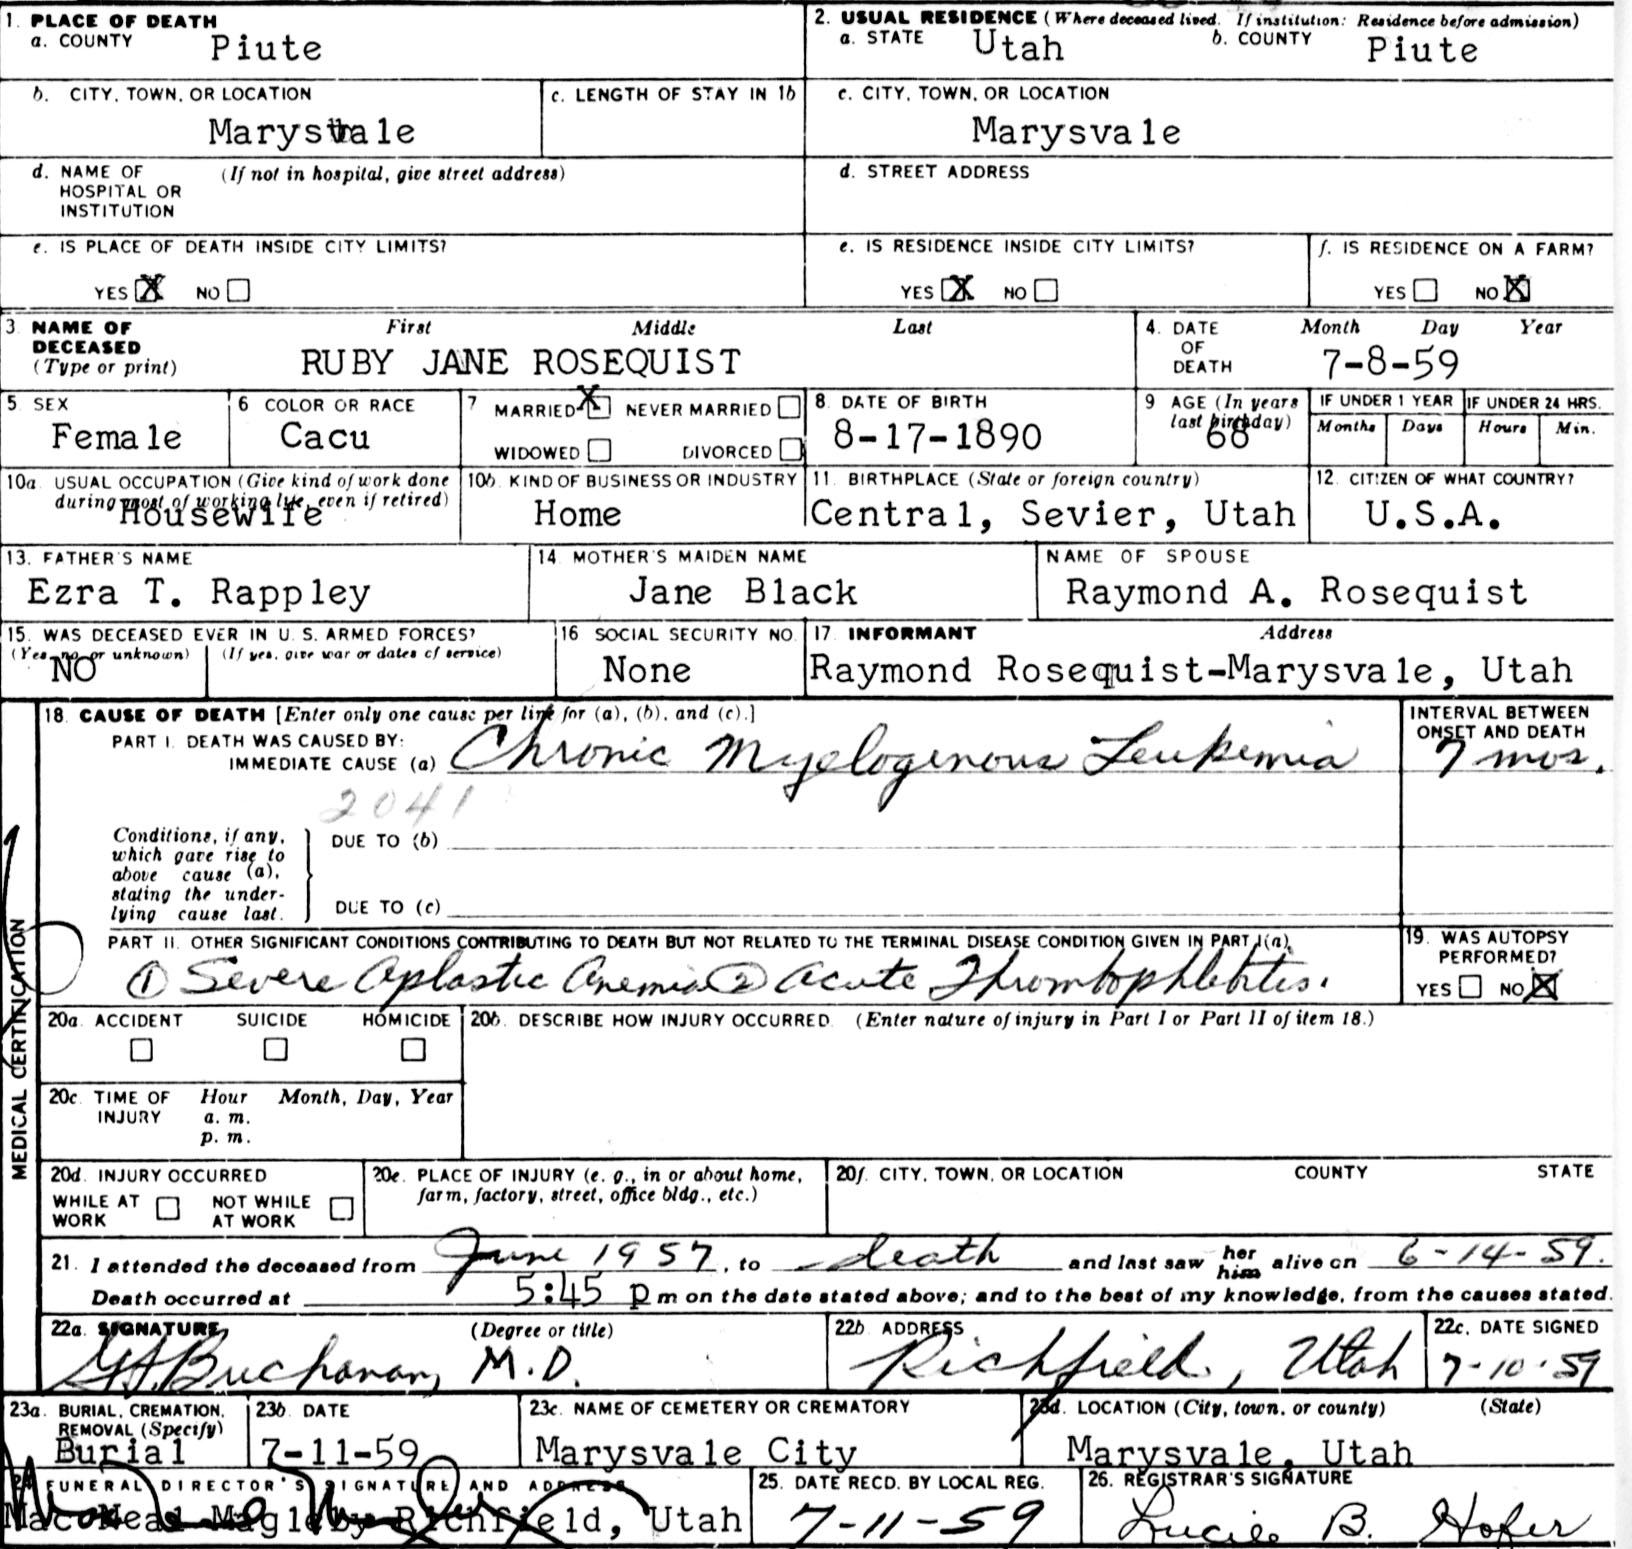 1. PLACE OF DEATH
a. COUNTY Piute
2. USUAL RESIDENCE (Where deceased lived. If institution: Residence before admission)
a. STATE Utah b. COUNTY Piute
b. CITY, TOWN, OR LOCATION
Marysvale
c. LENGTH OF STAY IN 1b
c. CITY, TOWN, OR LOCATION
Marysvale
d. NAME OF HOSPITAL OR INSTITUTION (If not in hospital, give street address)
d. STREET ADDRESS
e. IS PLACE OF DEATH INSIDE CITY LIMITS?
YES X NO
e. IS RESIDENCE INSIDE CITY LIMITS?
YES X NO
f. IS RESIDENCE ON A FARM?
YES NO X
3. NAME OF DECEASED (Type or print) First Middle Last
RUBY JANE ROSEQUIST
4. DATE OF DEATH Month Day Year
7-8-59
5. SEX
Female
6 COLOR OR RACE
Cacu
7 MARRIED X NEVER MARRIED
WIDOWED DIVORCED
8. DATE OF BIRTH
8-17-1890
9 AGE (In years last birthday)
68
IF UNDER 1 YEAR
Months Days
IF UNDER 24 HRS.
Hours Min.
10a. USUAL OCCUPATION (Give kind of work done during most of working life, even if retired)
Housewife
10b. KIND OF BUSINESS OR INDUSTRY
Home
11. BIRTHPLACE (State or foreign country)
Central, Sevier, Utah
12. CITIZEN OF WHAT COUNTRY?
U.S.A.
13. FATHER'S NAME
Ezra T. Rappley
14. MOTHER'S MAIDEN NAME
Jane Black
NAME OF SPOUSE
Raymond A. Rosequist
15. WAS DECEASED EVER IN U. S. ARMED FORCES?
(Yes, no, or unknown) (If yes, give war or dates of service)
NO
16 SOCIAL SECURITY NO.
None
17. INFORMANT Address
Raymond Rosequist-Marysvale, Utah
MEDICAL CERTIFICATION
18. CAUSE OF DEATH [Enter only one cause per line for (a), (b), and (c).]
PART I. DEATH WAS CAUSED BY:
IMMEDIATE CAUSE (a) Chronic Myelogenous Leukemia
INTERVAL BETWEEN ONSET AND DEATH
7 mos.
2041
Conditions, if any, which gave rise to above cause (a), stating the underlying cause last.
DUE TO (b)
DUE TO (c)
PART II. OTHER SIGNIFICANT CONDITIONS CONTRIBUTING TO DEATH BUT NOT RELATED TO THE TERMINAL DISEASE CONDITION GIVEN IN PART I(a)
① Severe Aplastic Anemia ② Acute Thrombophlebitis.
19. WAS AUTOPSY PERFORMED?
YES NO X
20a. ACCIDENT SUICIDE HOMICIDE
20b. DESCRIBE HOW INJURY OCCURRED. (Enter nature of injury in Part I or Part II of item 18.)
20c. TIME OF INJURY Hour Month, Day, Year
a. m.
p. m.
20d. INJURY OCCURRED
WHILE AT WORK NOT WHILE AT WORK
20e. PLACE OF INJURY (e. g., in or about home, farm, factory, street, office bldg., etc.)
20f. CITY, TOWN, OR LOCATION COUNTY STATE
21. I attended the deceased from June 1957, to death and last saw her him alive on 6-14-59.
Death occurred at 5:45 p m on the date stated above; and to the best of my knowledge, from the causes stated.
22a. SIGNATURE (Degree or title)
Buchanan, M.D.
22b. ADDRESS
Richfield, Utah
22c. DATE SIGNED
7-10-59
23a. BURIAL, CREMATION, REMOVAL (Specify)
Burial
23b. DATE
7-11-59
23c. NAME OF CEMETERY OR CREMATORY
Marysvale City
23d. LOCATION (City, town, or county) (State)
Marysvale, Utah
24 FUNERAL DIRECTOR'S SIGNATURE AND ADDRESS
Neal Magleby Richfield, Utah
25. DATE RECD. BY LOCAL REG.
7-11-59
26. REGISTRAR'S SIGNATURE
Lucile B. Hofer